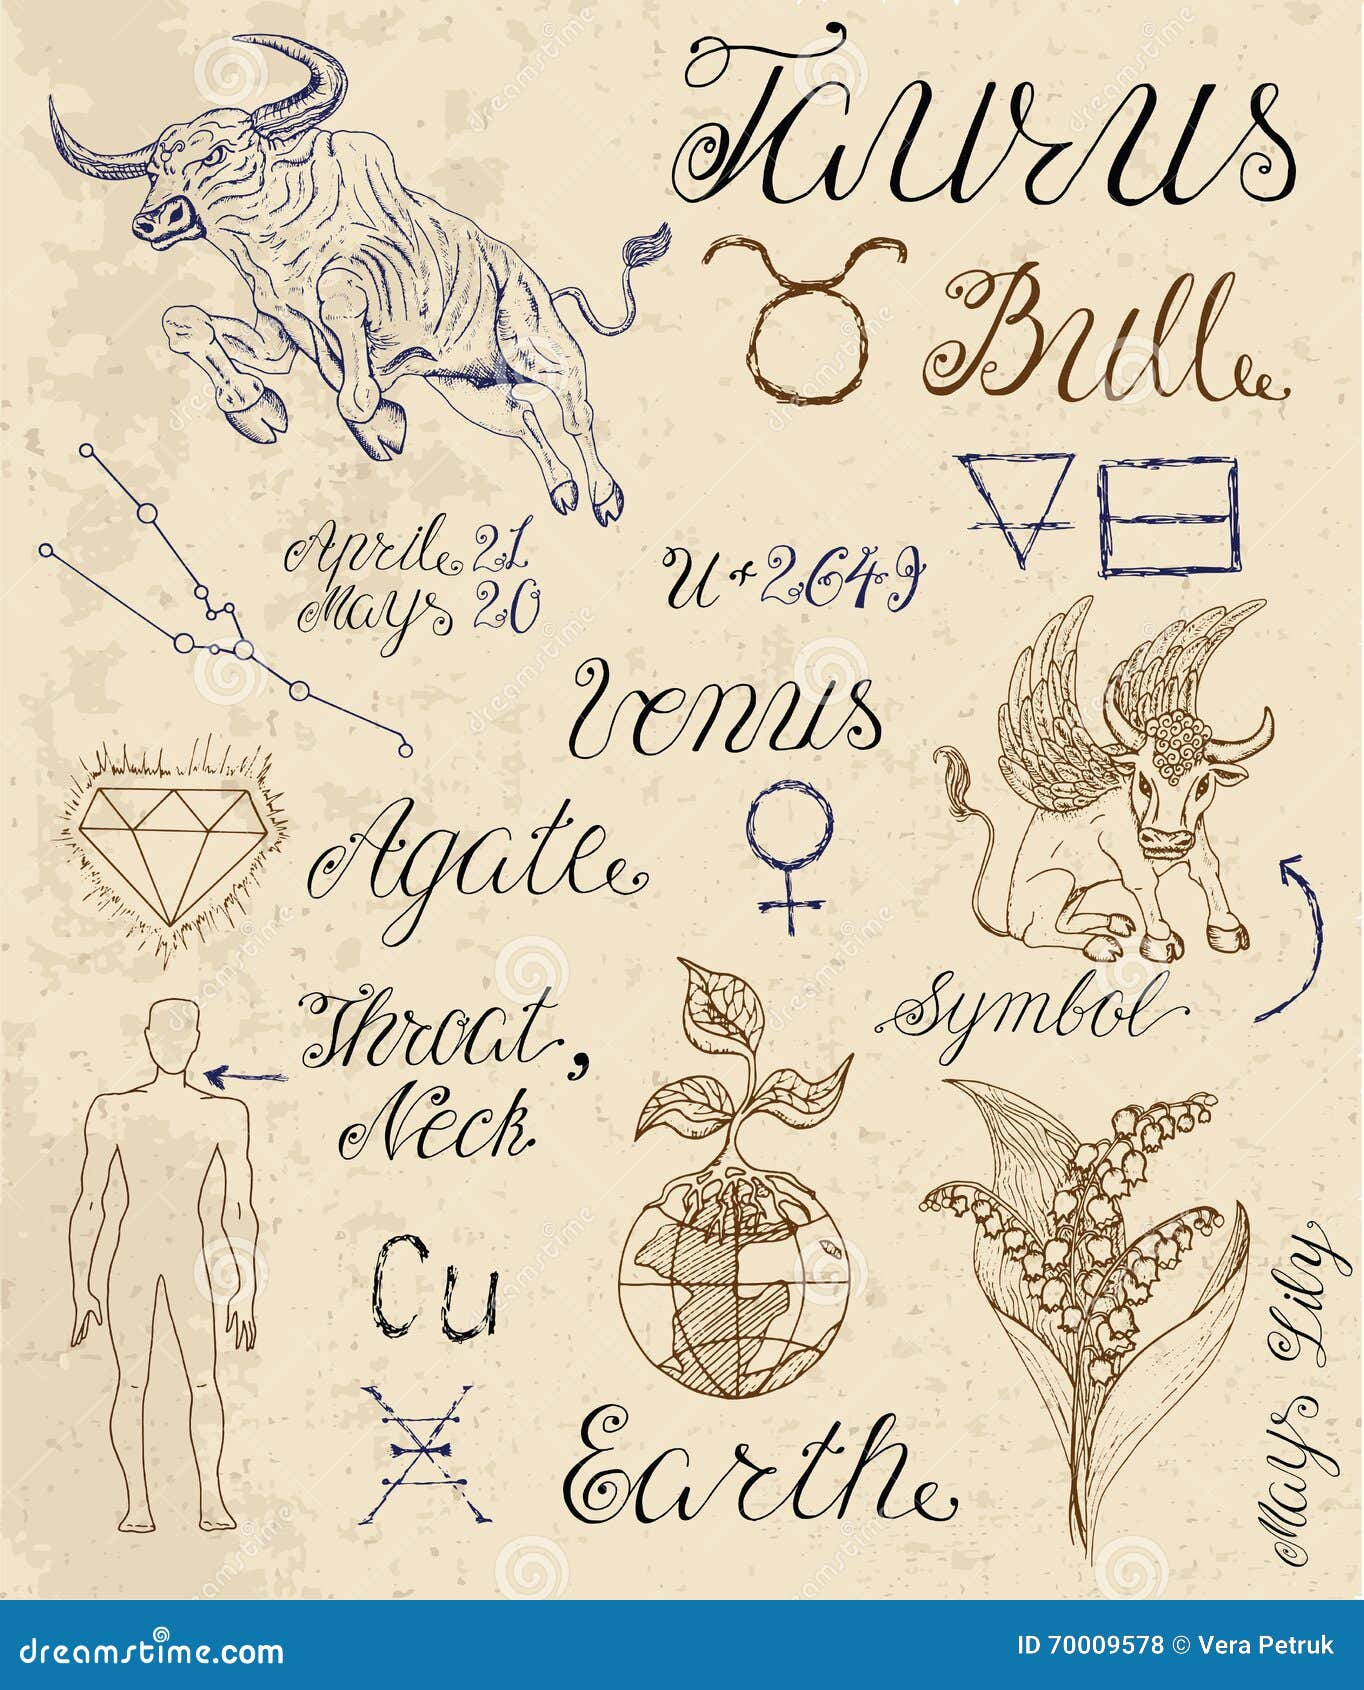 Taurus
Bull
April 21
May 20
U+2649
Venus
Agate
Throat,
Neck
Symbol
Cu
Earth
May's Lily
dreamstime.com
ID 70009578 © Vera Petruk